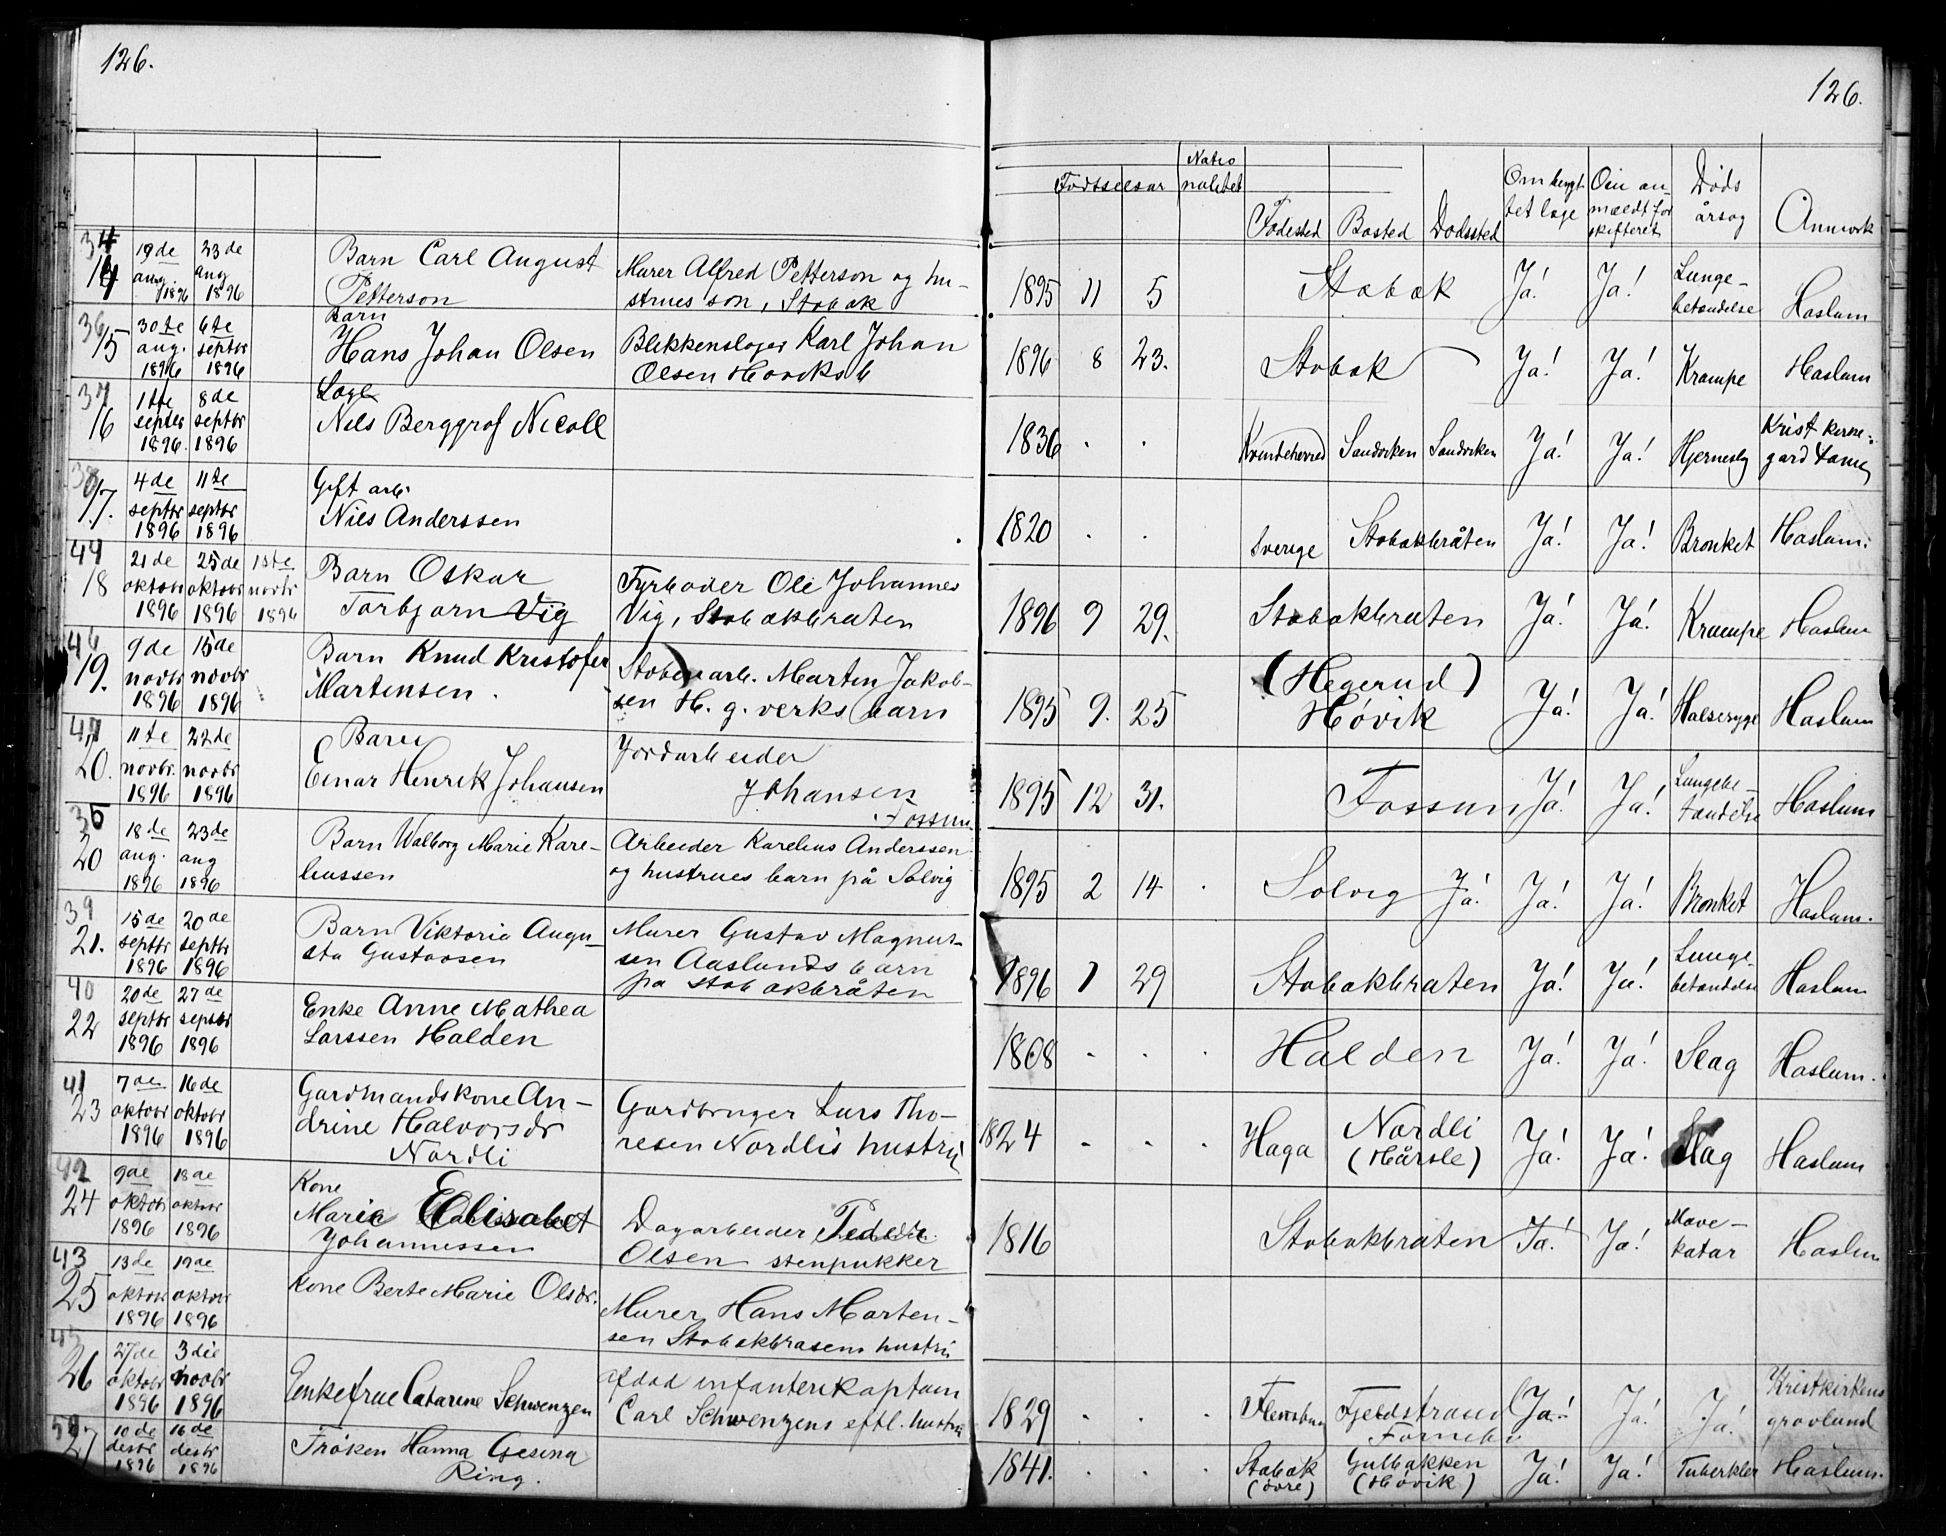 126.
126.
Natio
Fødselsar nalitet
Om bragt Om an Døds
tet lage mældt for årsag Anmerk
Fodested Bosted Dodssted skifteret
34 19de 23de Barn Carl August
14 aug 1896 aug 1896 Petterson
Murer Alfred Petterson og hu-
strues son, Stabak
1895 11 5 Stabak Ja! Ja! Lunge-
betendelse Haslum
36 30te 6te Barn
15 aug. 1896 septbr 1896 Hans Johan Olsen
Blikkenslager Karl Johan
Olsen Hoviks b
1896 8 23. Stabak Ja! Ja! Krampe Haslum
37 1ste 8de Lage
16 septbr 1896. septbr 1896 Nils Berggraf Nicoll
1836 . . Kvindeherred Sandviken Sandviken Ja! Ja! Hjerneslg Krist kirke-
gard
38 4de 11te Gift arb.
17. septbr 1896 septbr 1896 Nils Anderssen
1820 . . Sverige Stabakbråten Ja! Ja! Bronket Haslum.
44 21de 25de 1ste Barn Oskar
18 oktobr 1896 oktobr 1896 novbr 1896 Torbjorn Vig
Fyrbøder Ole Johannes
Vig, Stabakbraten
1896 9 29. Stabakbraten Ja! Ja! Krampe Haslum
46 9de 15de Barn Knud Kristofer
19. novbr 1896 novbr 1896 Martensen.
arb. Marten Jakob-
sen H. g. verks barn
1895 9. 25 (Hegerud)
Høvik Ja! Ja! Halssyge Haslum
47 11te 22de Barn
20. novbr. 1896 novbr 1896 Einar Henrik Johansen
Jordarbeider
Johansen
Fossum
1895 12 31. Fossum Ja! Ja! Lungebe-
tendelse Haslum
35 18de 23de Barn Walborg Marie Kare-
20 aug. 1896 aug 1896 liussen
Arbeider Karelius Anderssen
og hustrues barn på Solvig
1895 2 14 . Solvig Ja! Ja! Ja! Bronket Haslum.
39 15de 20de Barn Viktoria Augu-
21. septbr 1896 septbr 1896 sta Gustavsen
Murer Gustav Magnus-
sen Aaslunds barn
pa Stabakbråten
1896 1 29 Stabakbraten Ja! Ja! Lunge-
betendelse Haslum
40 20de 27de Enke Anne Mathea
22 septbr 1896 septbr 1896 Larssen Halden
1808 . . . Halden Ja! Ja! Slag Haslum.
41 7de 16de Gardmandskone An-
23 oktobr 1896 oktobr 1896 drine Halvorsdr
Nordli
Gardbruger Lars Tho-
resen Nordlis hustru
1824 . . . Haga Nordli
(Hårsle) Ja! Ja! Slag Haslum
42 9de 18de Kone
24 oktobr 1896 oktobr 1896 Marie Elisabet
Johannessen
Dagarbeider
Olsen stenpukker
1816 Stabakbraten Ja! Ja! Mave-
katar Haslum
43 13de 19de
25 oktobr 1896 oktobr 1896 Kone Berte Marie Olsdr.
Murer Hans Marten-
sen Stabakbrasens hustru
45 27de 3die
26 oktobr 1896 novbr 1896 Enkefrue Catarine Schwenzen
afdød infanterikaptain
Carl Schwenzens eftl. hustru
1829 . . . Flensburg Fjeldstrand
Fornebo Ja! Ja! Ja! Kristkirkens
gravlund
27 10de 16de Frøken Hanna Gesina
desbr 1896 desbr 1896 Ring.
1841. . . . Stabæk
(øvre) Gulbakken
(Høvik) Ja! Ja! Tuberkler Haslum.